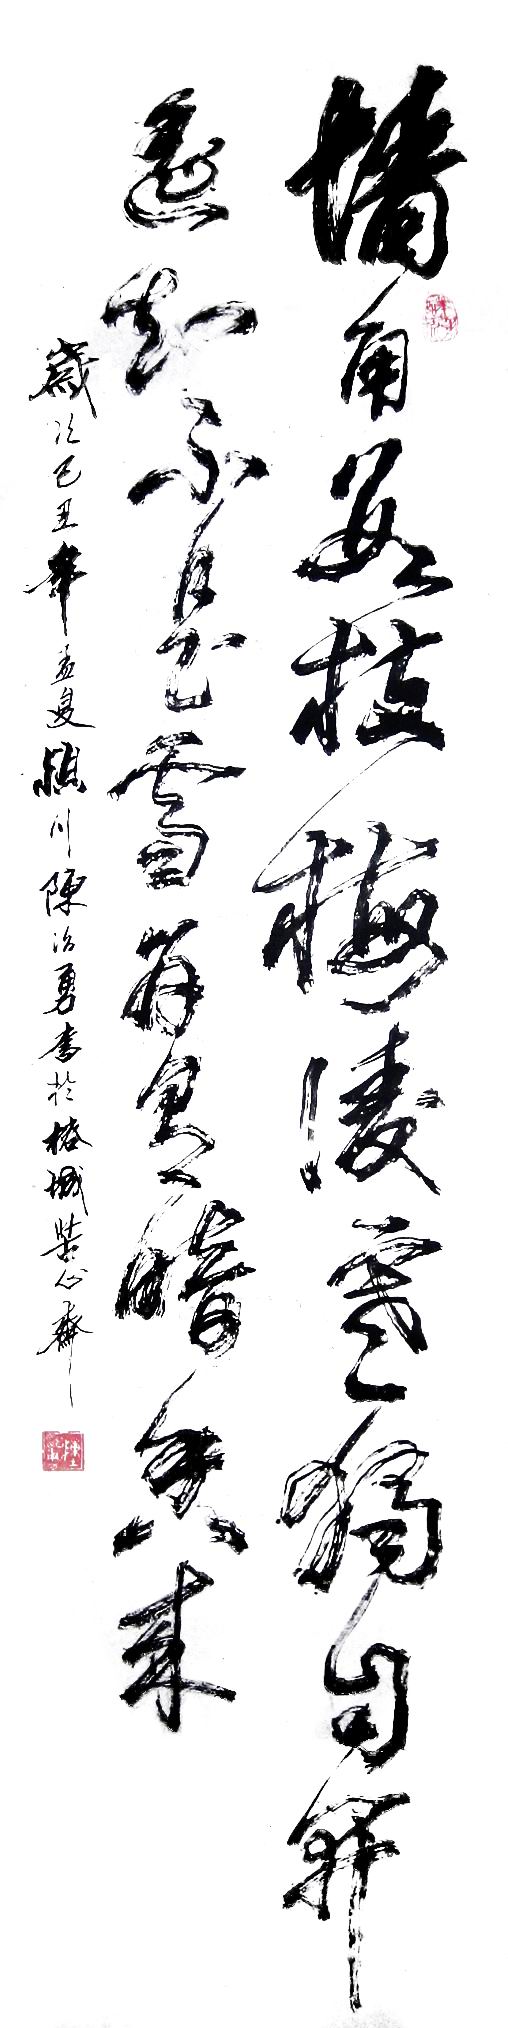 墙角数枝梅凌寒独自开
遥知不是雪为有暗香来
岁次己丑年孟夏 川陈治勇书于榕城 心斋